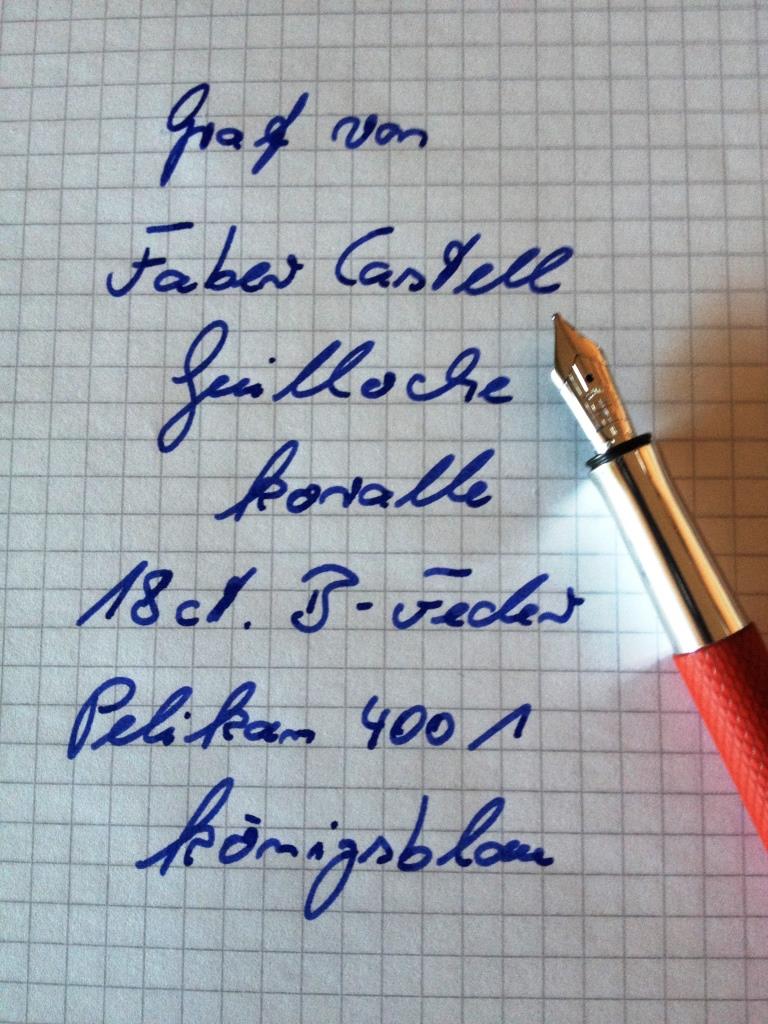 Graf von
Faber Castell
Guilloche
koralle
18ct. B-Feder
Pelikan 4001
königsblau